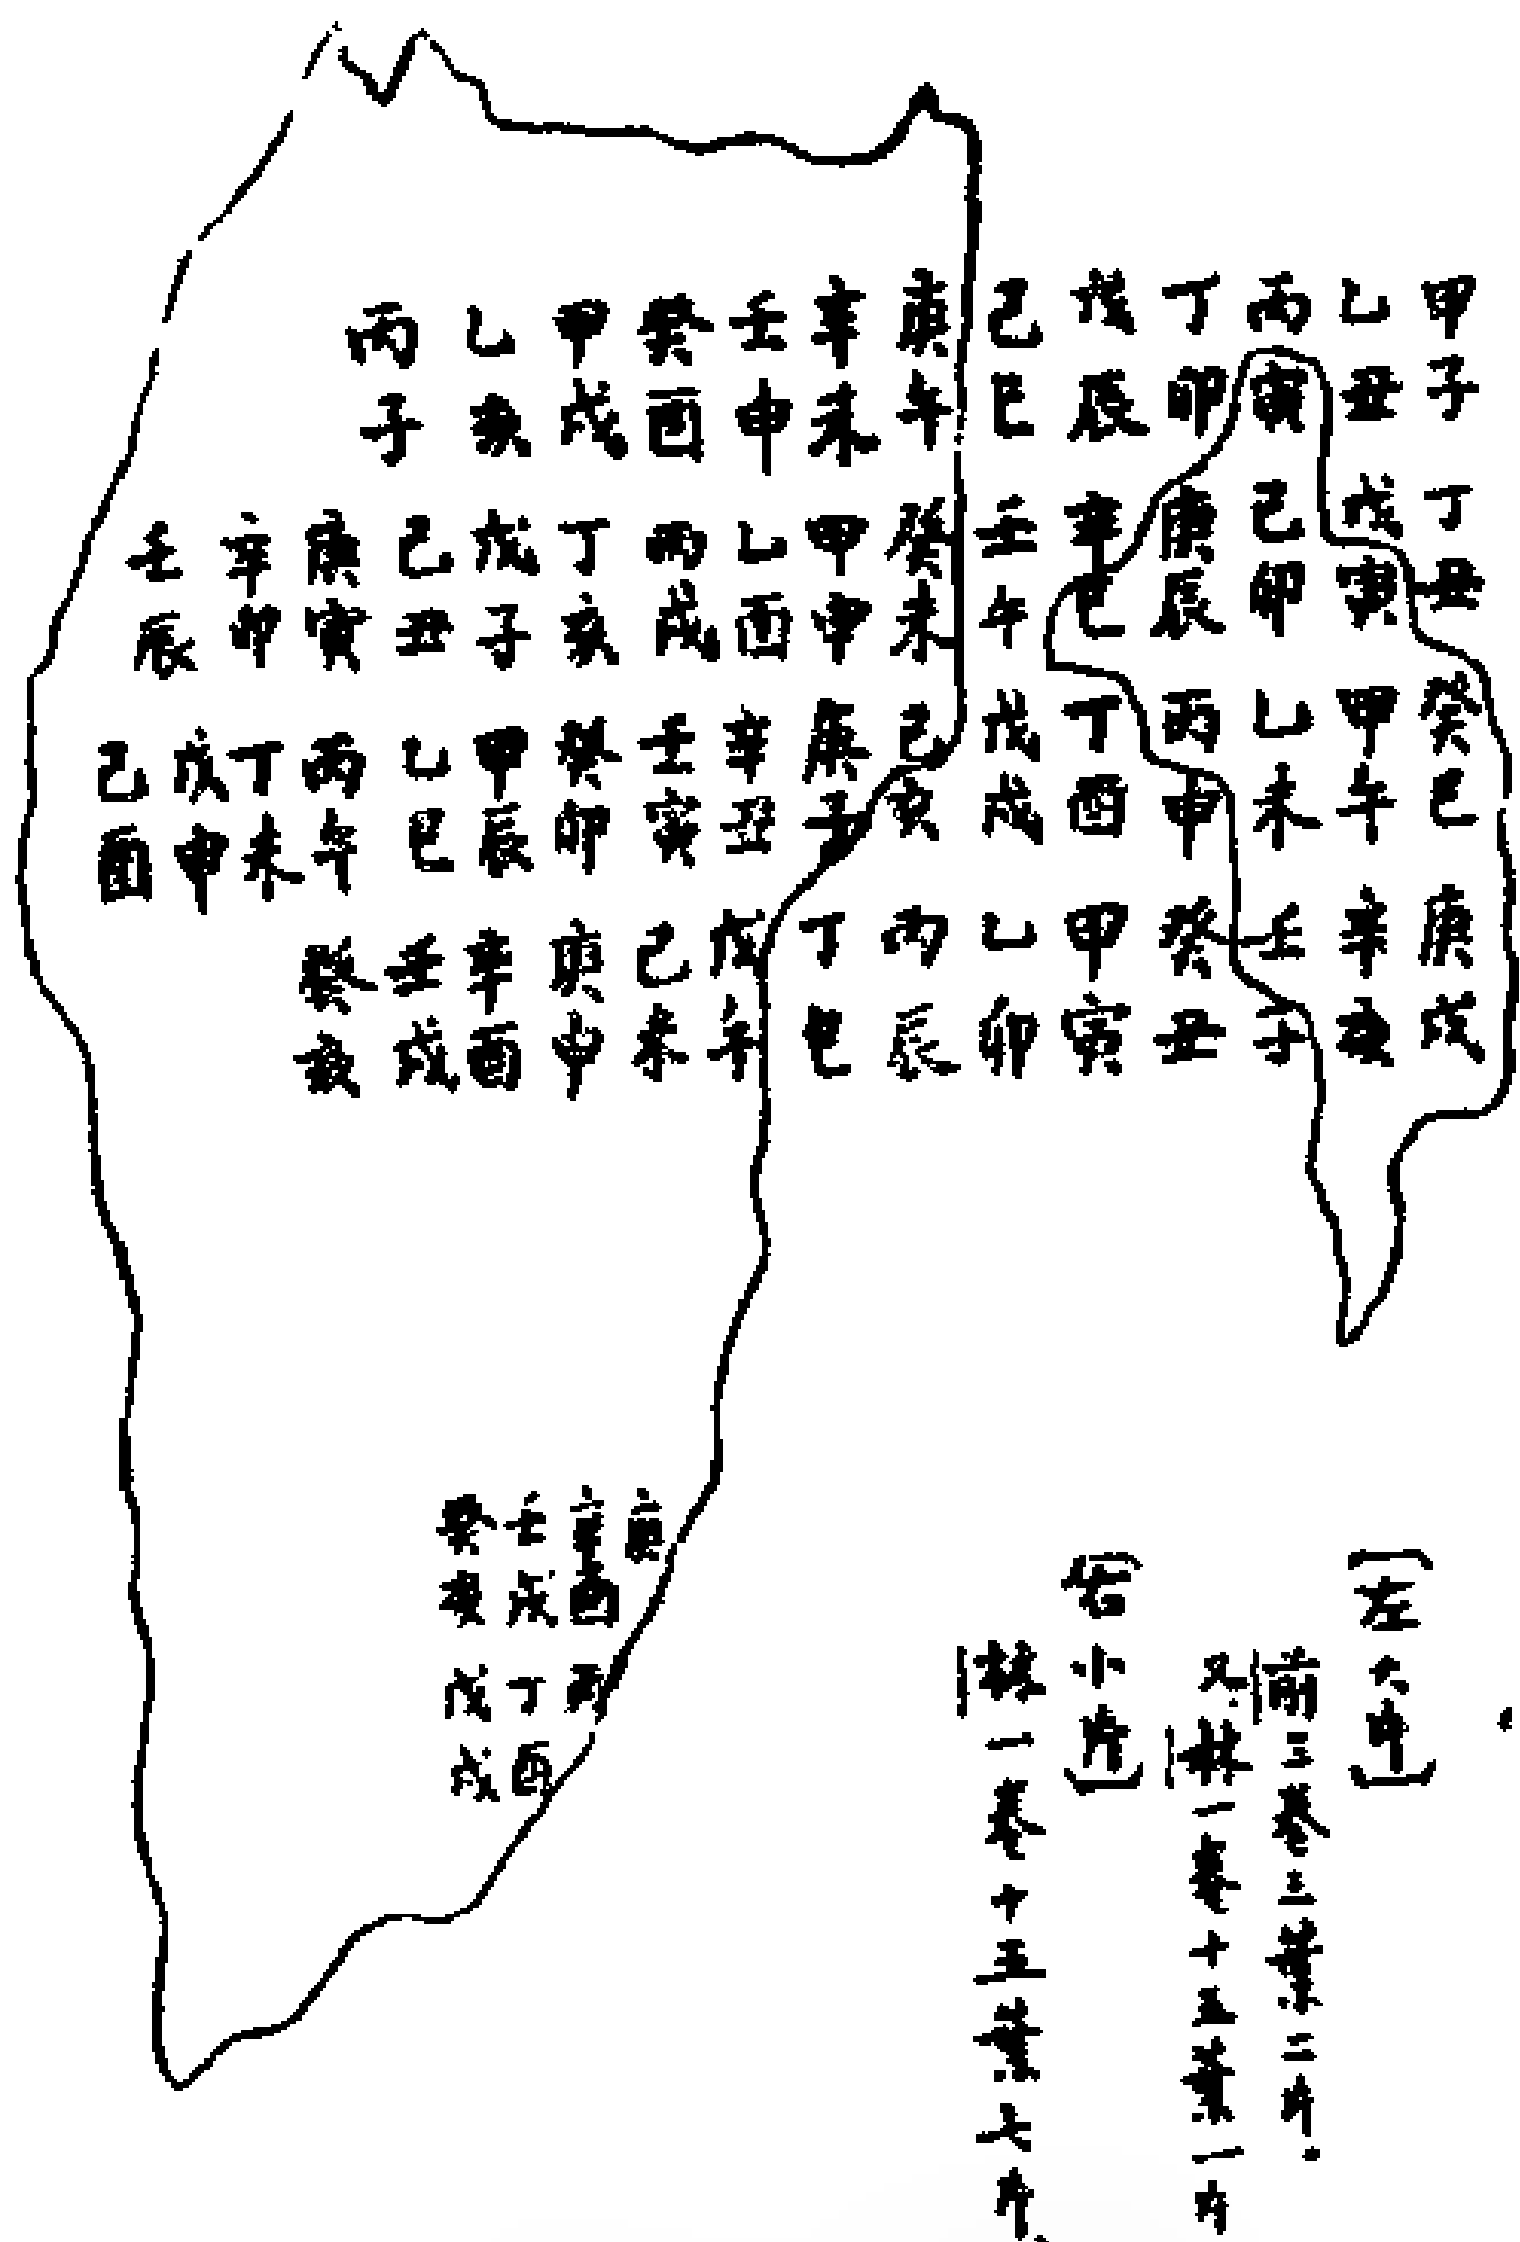 甲子乙丑丙寅丁卯戊辰己巳庚午辛未壬申癸酉甲戌乙亥丙子
丁丑戊寅己卯庚辰辛巳壬午癸未甲申乙酉丙戌丁亥戊子己丑庚寅辛卯壬辰
癸巳甲午乙未丙申丁酉戊戌己亥庚子辛丑壬寅癸卯甲辰乙巳丙午丁未戊申己酉
庚戌辛亥壬子癸丑甲寅乙卯丙辰丁巳戊午己未庚申辛酉壬戌癸亥
庚辛酉壬戌癸亥
丙丁酉戊戌
[左大片]
前三卷三葉二片.
又.林一卷十五葉一片
[右小片]
林一卷十五葉七片.